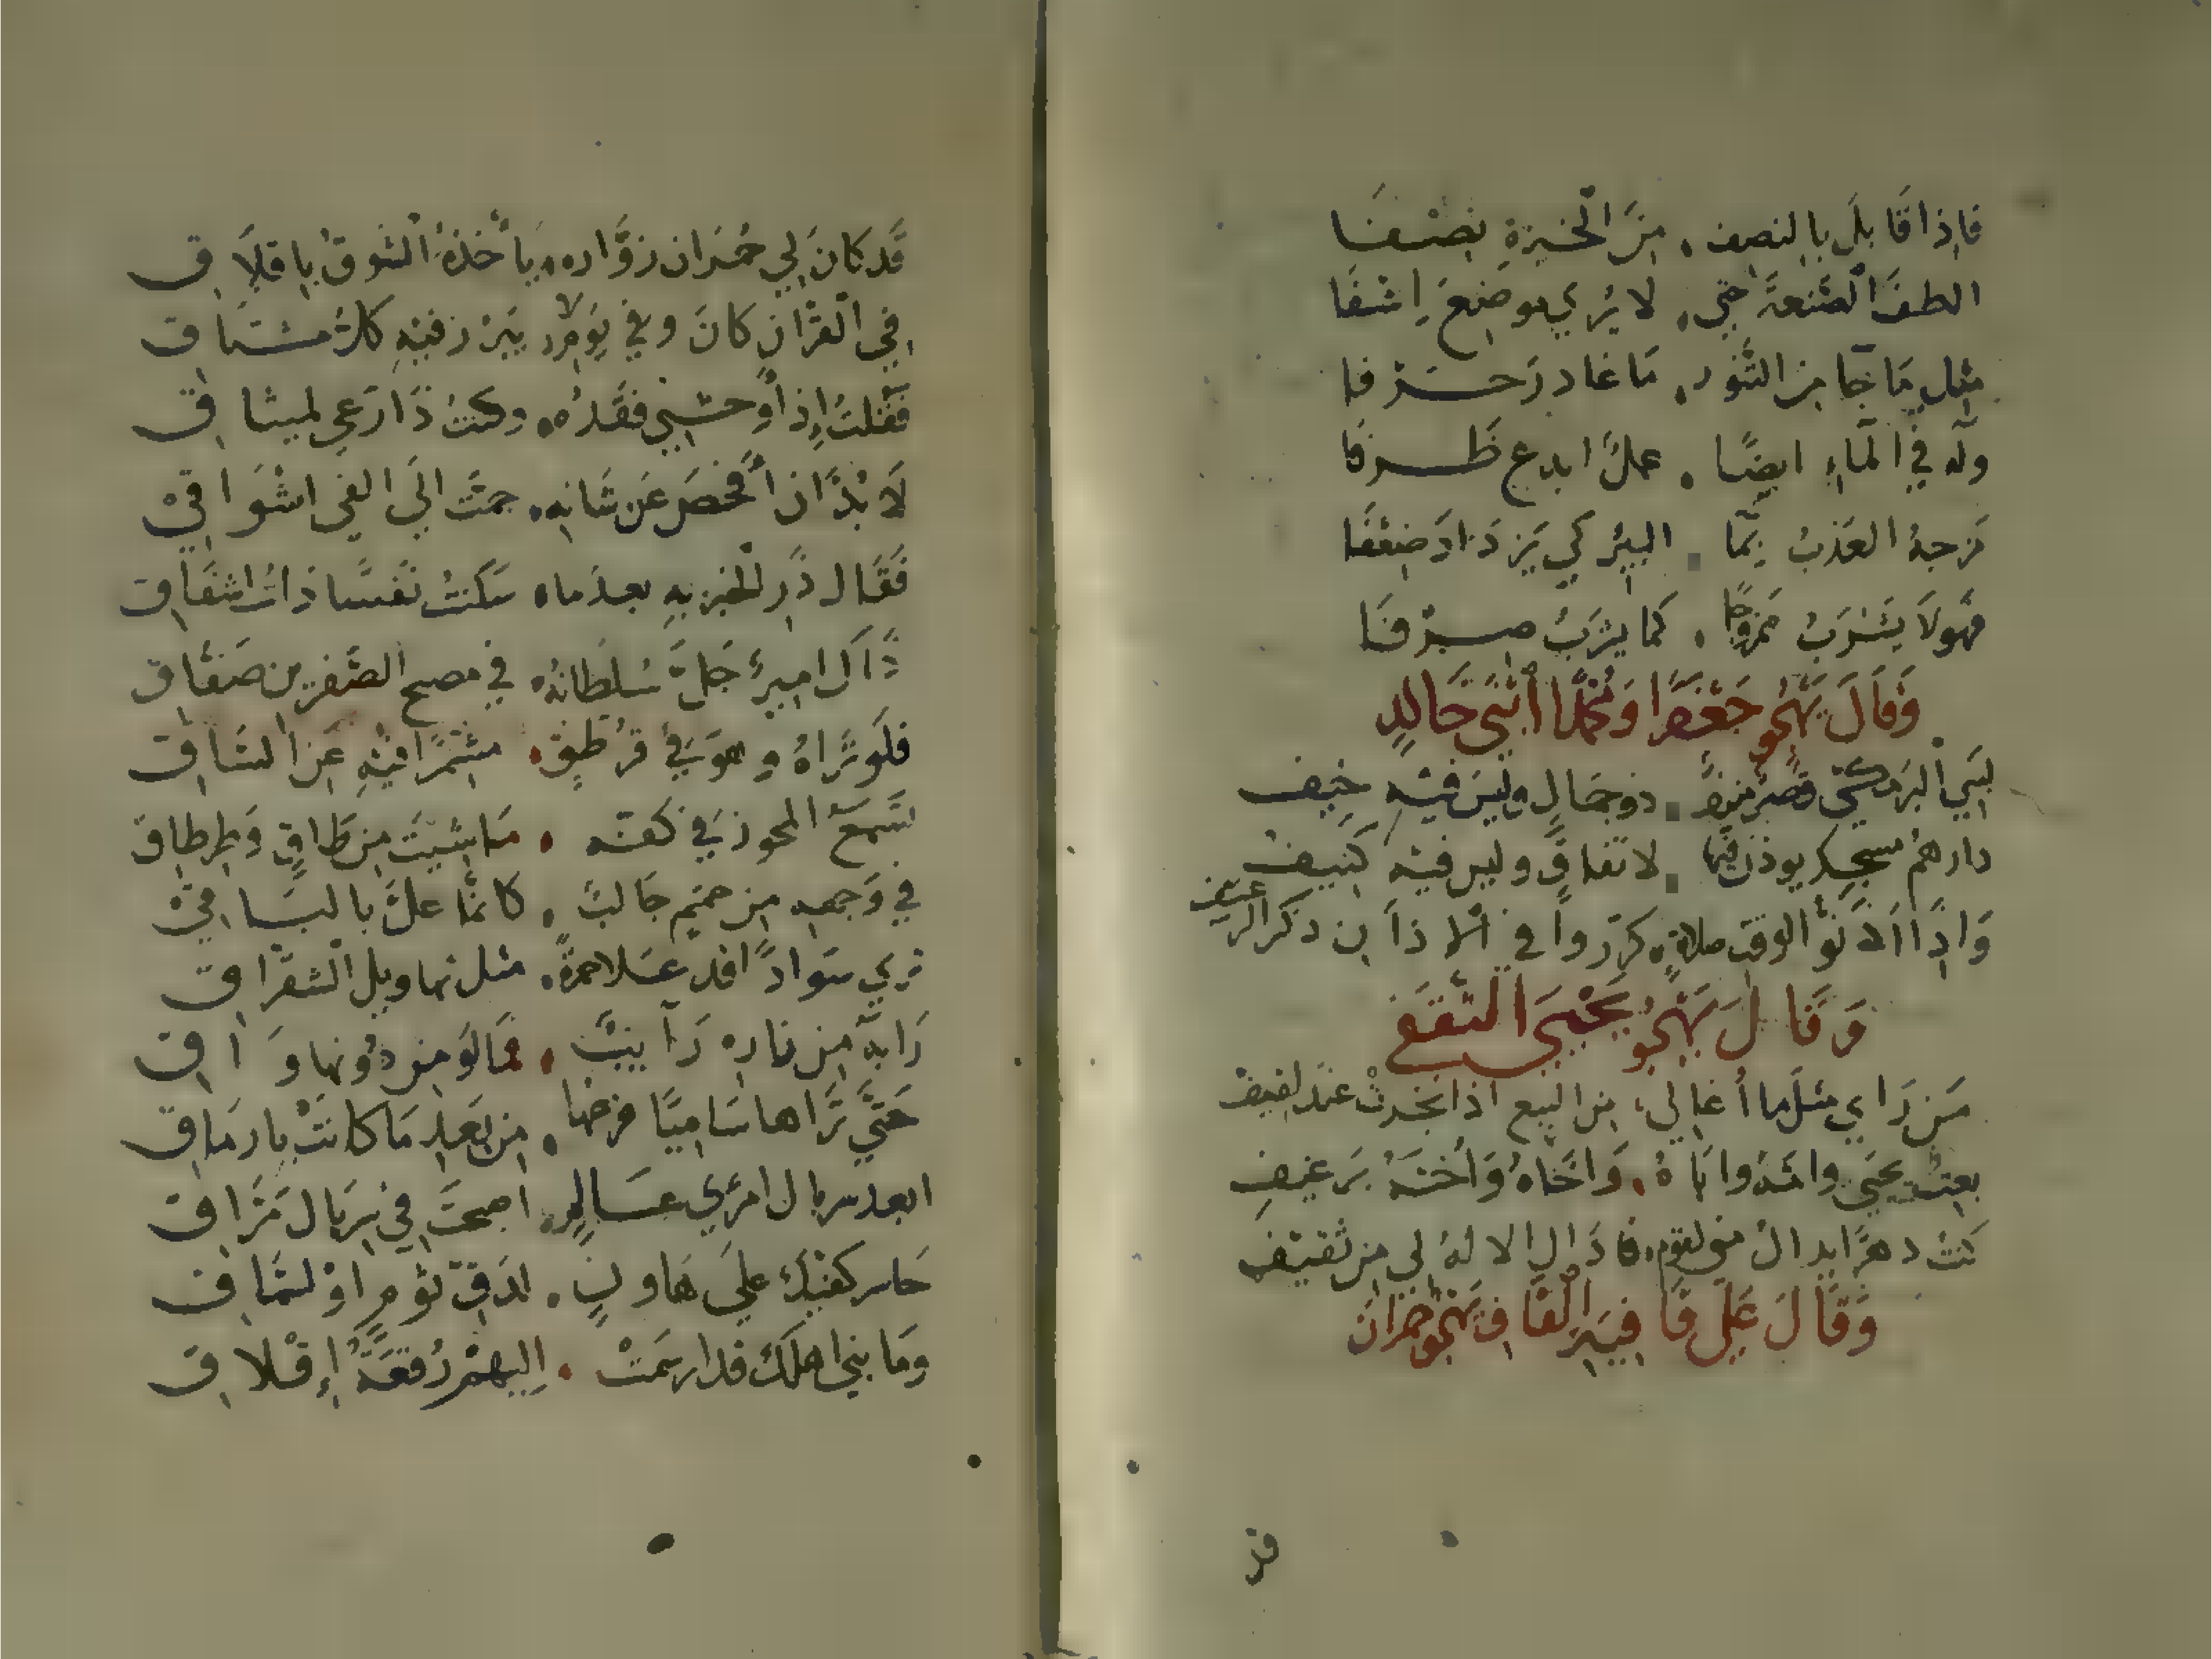 فاذا قابل بالنصف . من الخبزة نصفا
الطف الصنعة حتى . لا يرى موضع اشفا
مثل ما جا من التنور . ما غادر حرفا
وله في الماء ايضا . عمل ابدع ظرفا
مزجه العذب بما . البير كي يزداد ضعفا
فهو لا يشرب ممزوجا . كما يشرب صرفا
وقال يهجو جعفرا ومحمدا ابني خالد
لبني البرمكي قصر منيف . ذو جمال وليس فيه خيف
دارهم مسجد يوذن فيها . لا تفاق وليس فيه كنيف
واذا اذنو الوقت صلاة . كرروا في الاذان ذكر الرغيف
وقال يهجو يحيى الثقفي
من راى مثل ما اغالي . من البيع اذا تجرت عند لفيف
بعت يحيى وامه واباه . واخاه واخته برغيف
كنت دهرا ابدال من لقوم . فادال الاله لي من ثقيف
وقال على قافية القاف يهجو حمران
قد كان لي حمران زواره . ياخذه الشوق باقلاق
في القران كان وفي يوم لا . يبرز فيه كل مشتاق
فقلت اذ اوحشني فقده . وكنت ذا رعي لميثاق
لا بد ان افحص عن شانه . جمت الى الفي اشواقي
فقال ذر الخبز به بعدماه سكنت نفسا ذات اشفاق
ذاك امير جل سلطانه . في مصبح الصفر من صفاق
فلو تراه وهو في قرطق . مشمرا فيه عن الساق
يتبع المحوز في كفه . ما شيت من طاق وطرطاق
في وجهه من حمم جالب . كانما عل بالساقي
ترى سوادا قد علا حمرة . مثل تهاويل الشقراق
رابه من ناره رايب . فما لو من دونها واق
حتى تراها ساميا فرخها . من بعد ما كانت بارماق
ابعد سربال امري عالم . اصبحت في سربال مراق
حاس كفيك على هاون . لدق ثوم او لسماق
وما بني اهلك قد ارسمت . اليهم رقعة اقلاق
قد